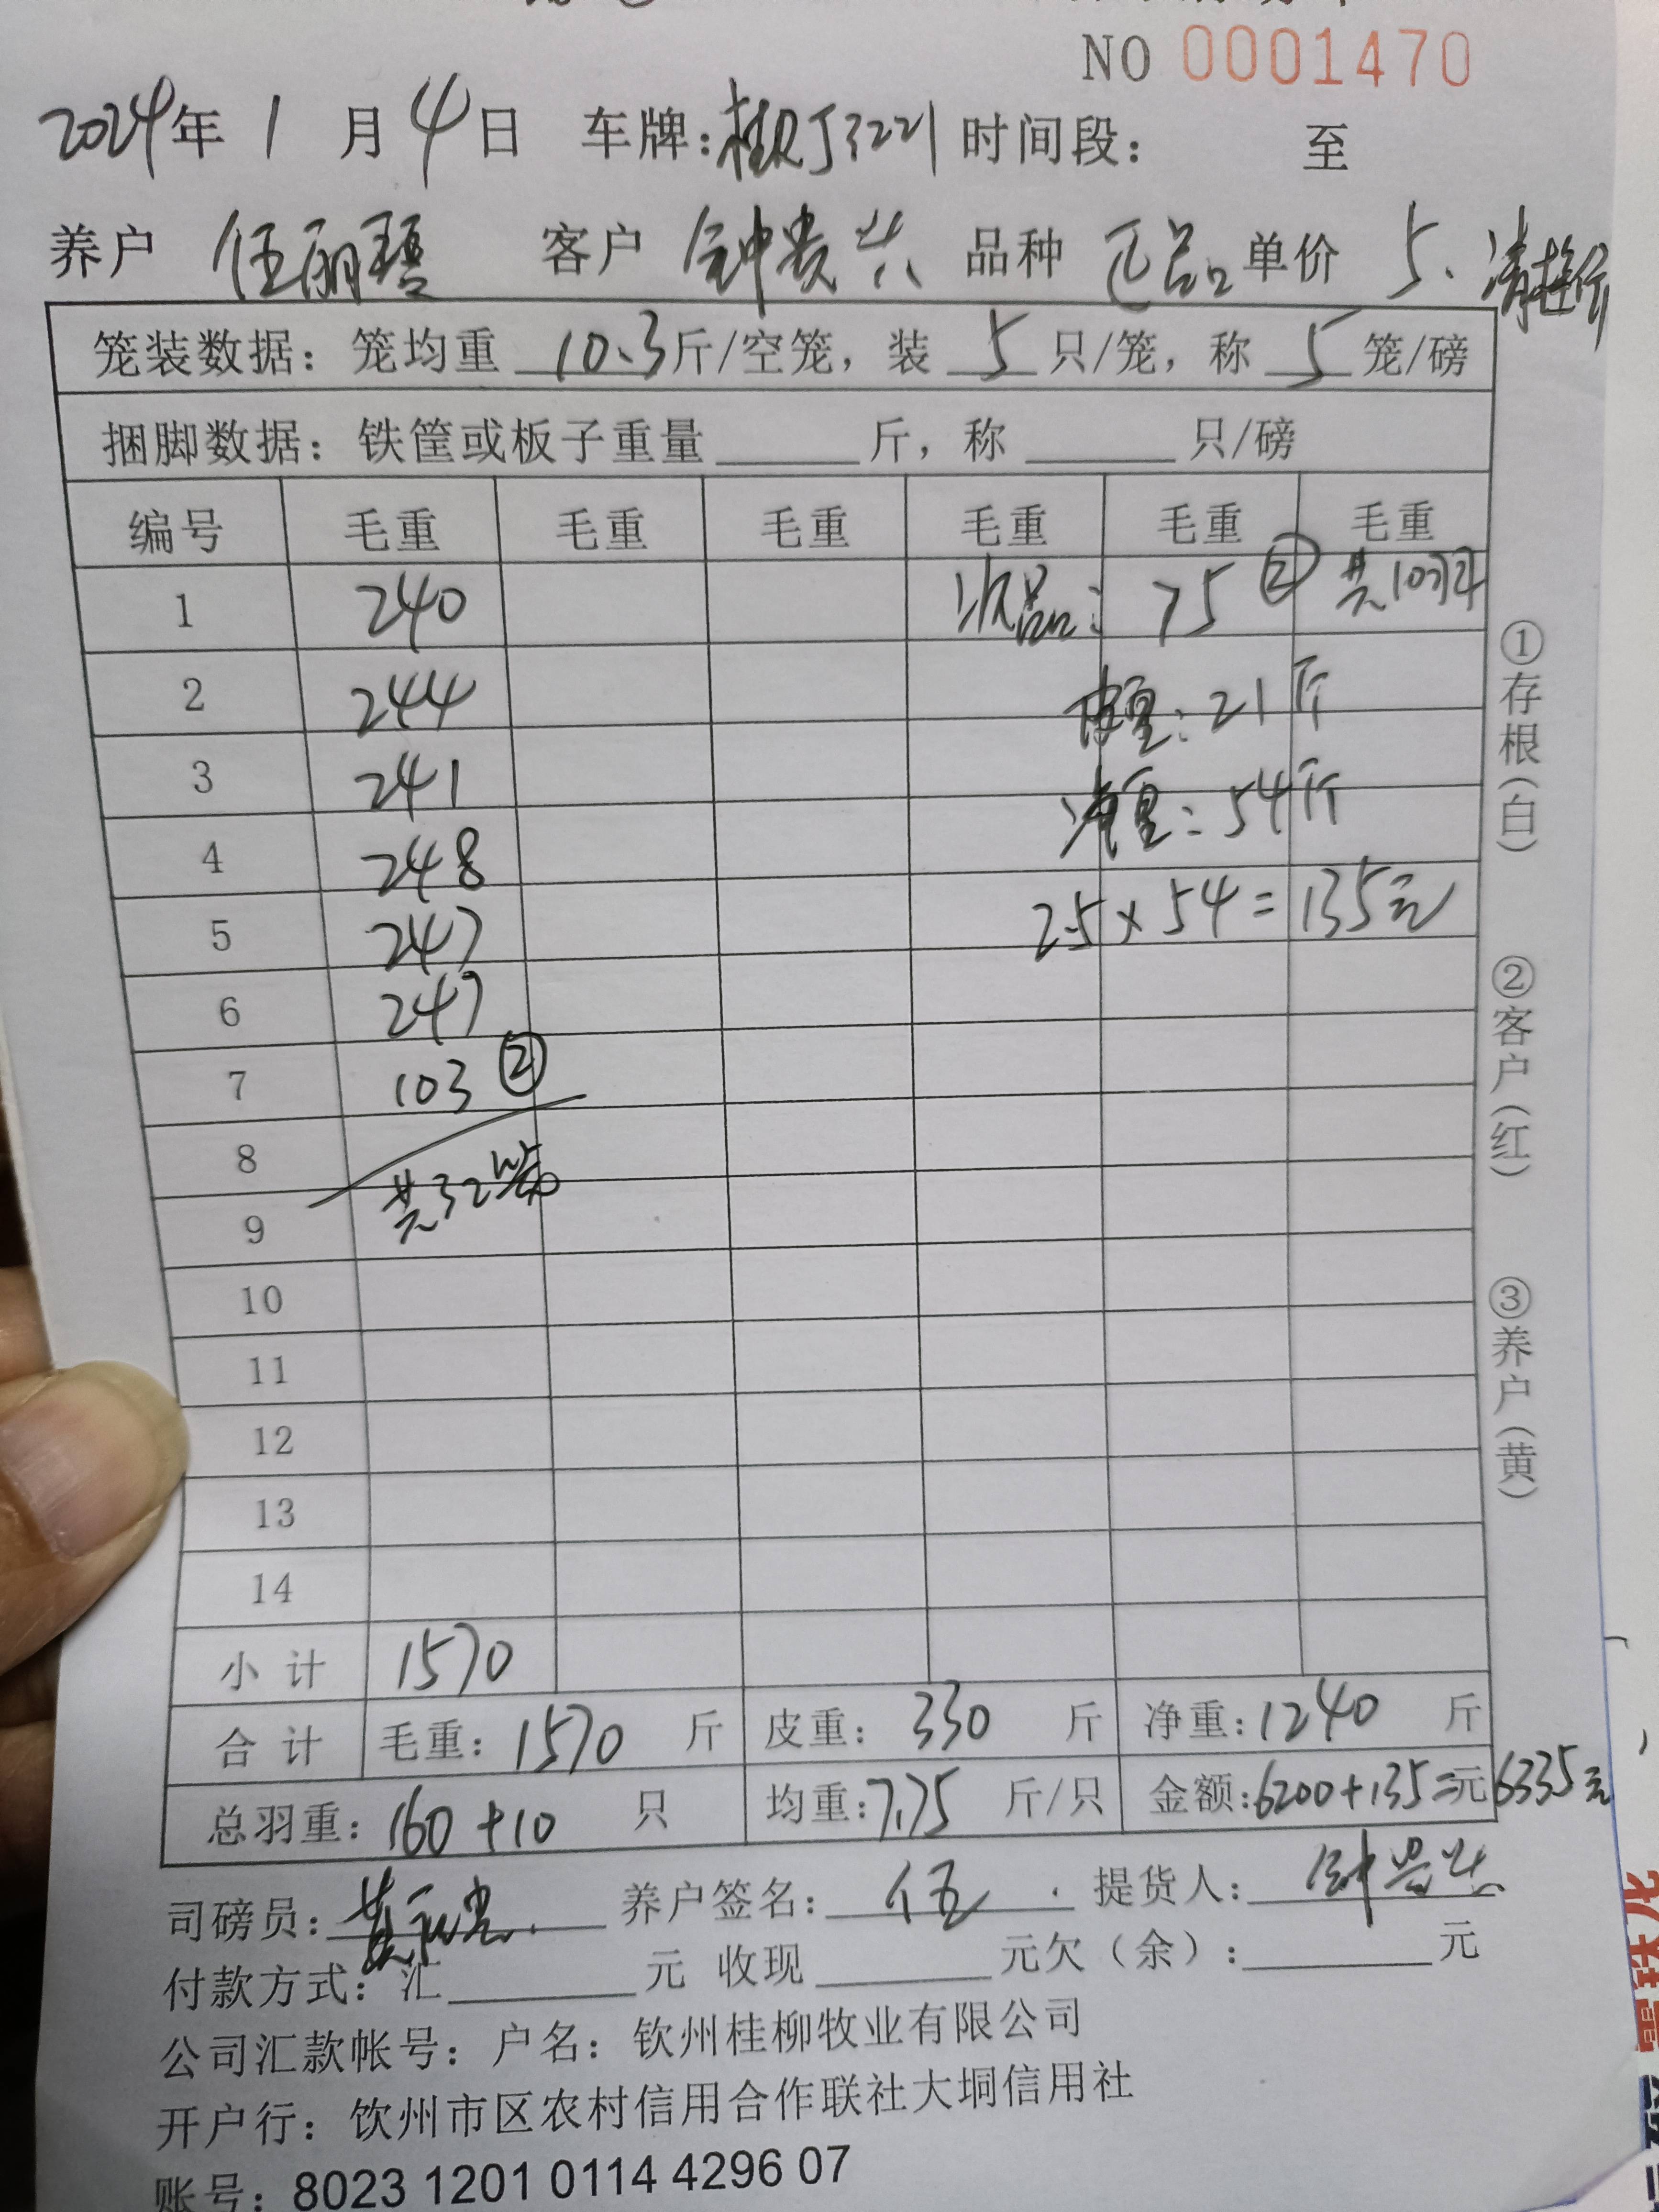 NO 0001470
2024年 1 月 4 日 车牌:桂RJ3221 时间段: 至
养户 伍丽琼 客户 钟贵兴 品种 正品 单价 5.
笼装数据: 笼均重 10.3 斤/空笼, 装 5 只/笼, 称 5 笼/磅
捆脚数据: 铁筐或板子重量 斤, 称 只/磅
编号 毛重 毛重 毛重 毛重 毛重 毛重
1 240 次品: 75 ② 共10只
2 244 皮重: 21斤
3 241 净重: 54斤
4 248 2.5×54=135元
5 247
6 247
7 103 ②
8
9 共32笼
10
11
12
13
14
小 计 1570
合 计 毛重: 1570 斤 皮重: 330 斤 净重: 1240 斤
总羽重: 160+10 只 均重: 7.75 斤/只 金额: 6200+135=元 6335元
司磅员: 养户签名: 伍 提货人: 钟贵兴
付款方式: 汇 元 收现 元欠(余): 元
公司汇款帐号: 户名: 钦州桂柳牧业有限公司
开户行: 钦州市区农村信用合作联社大垌信用社
账号: 8023 1201 0114 4296 07
①存根(白)
②客户(红)
③养户(黄)